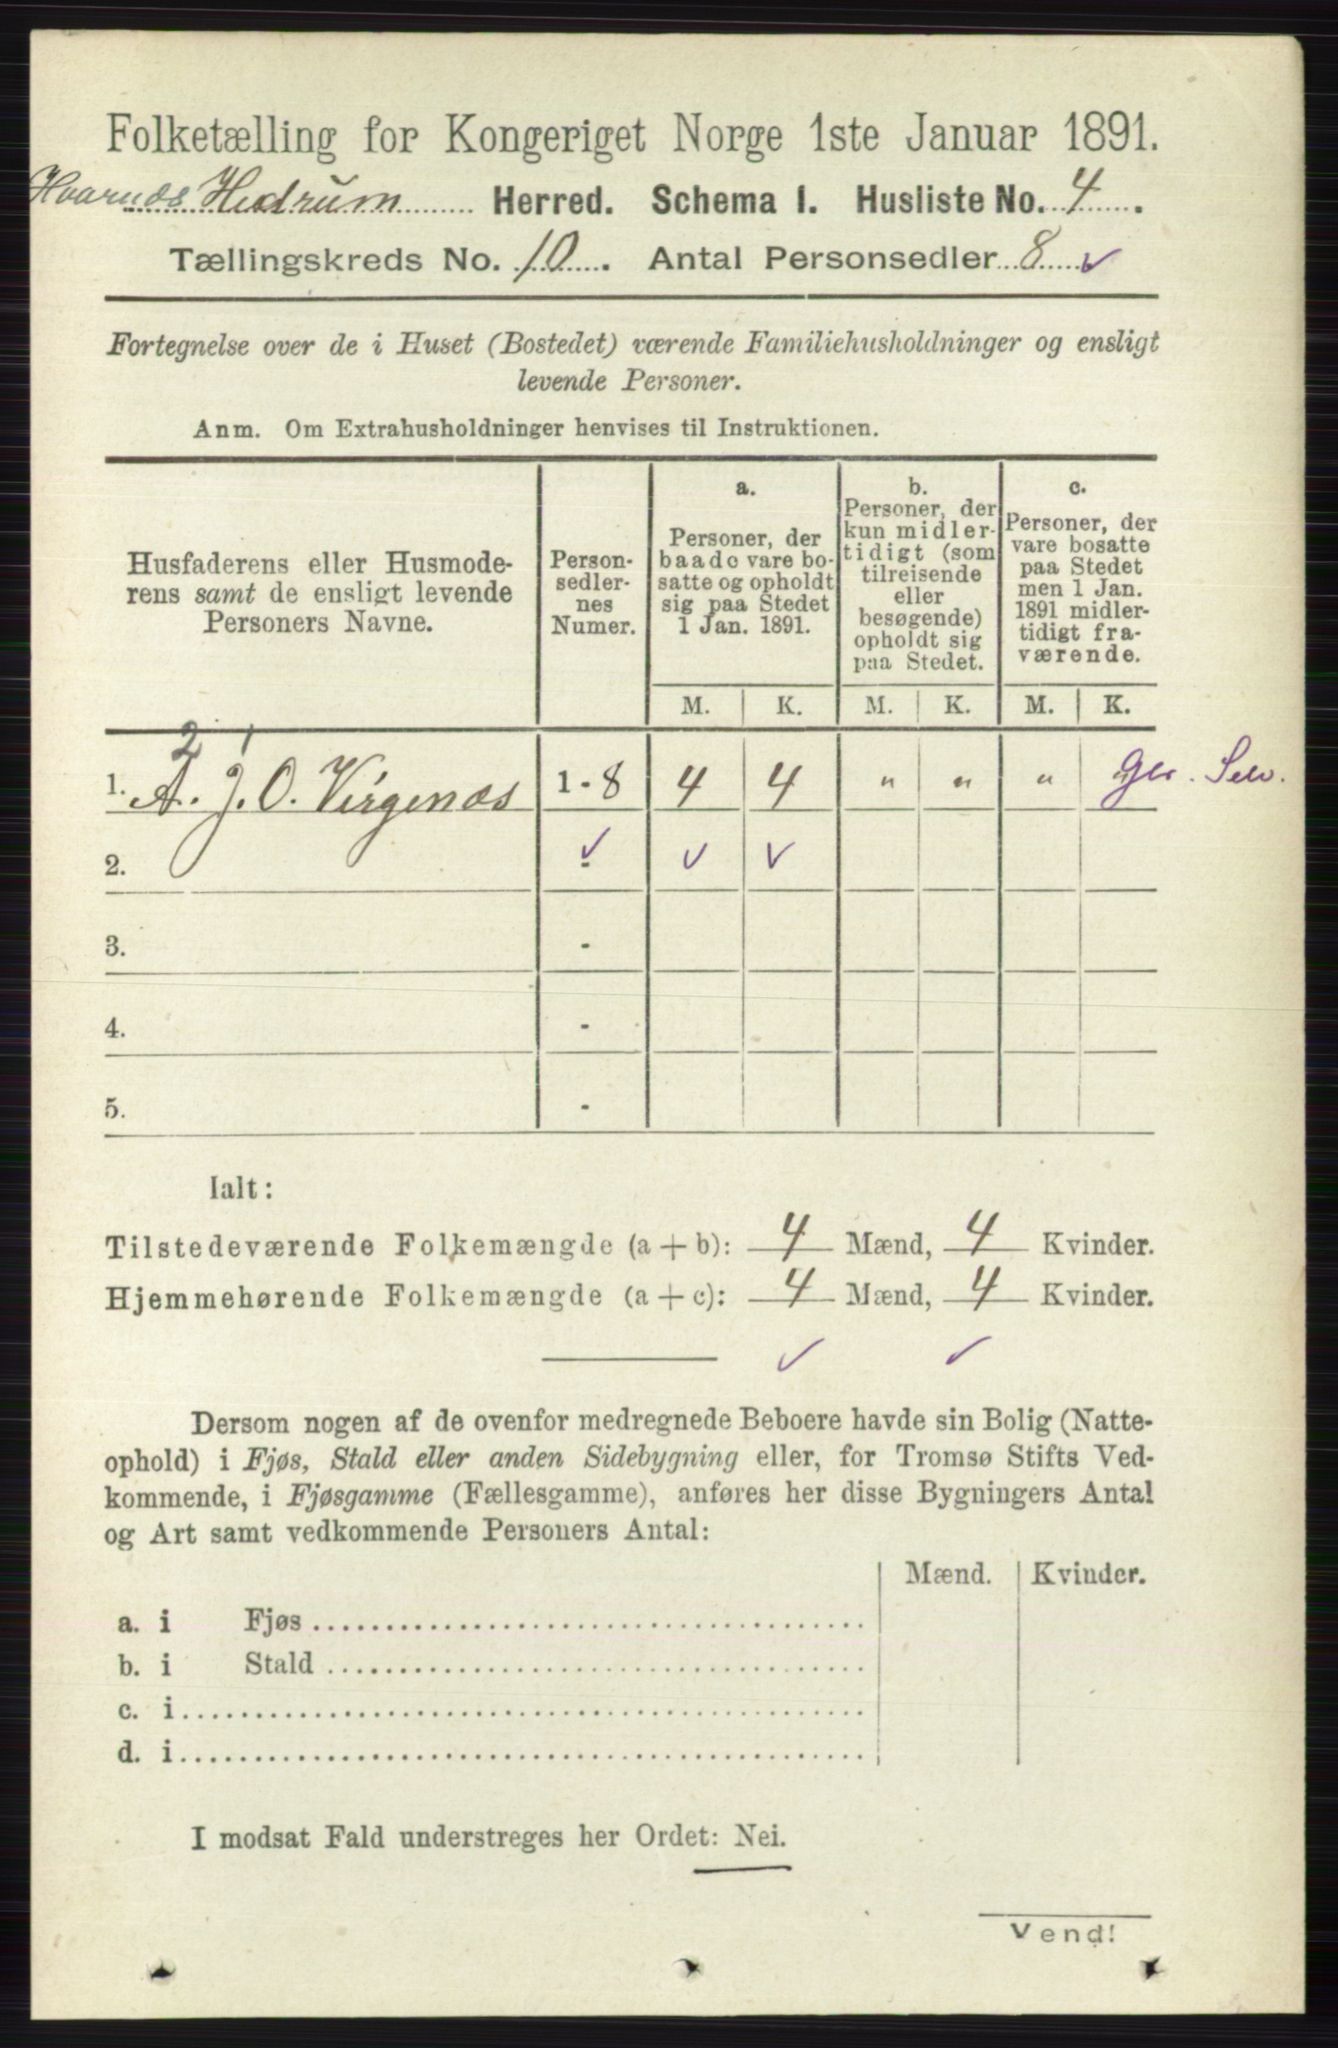 Folketælling for Kongeriget Norge 1ste Januar 1891.
Hvarnæs Hedrum Herred. Schema I. Husliste No. 4.
Tællingskreds No. 10. Antal Personsedler 8 ✓
Fortegnelse over de i Huset (Bostedet) værende Familiehusholdninger og ensligt
levende Personer.
Anm. Om Extrahusholdninger henvises til Instruktionen.
Husfaderens eller Husmode-
rens samt de ensligt levende
Personers Navne.
Person-
sedler-
nes
Numer.
a.
Personer, der
baade vare bo-
satte og opholdt
sig paa Stedet
1 Jan. 1891.
b.
Personer, der
kun midler-
tidigt (som
tilreisende
eller
besøgende)
opholdt sig
paa Stedet.
c.
Personer, der
vare bosatte
paa Stedet
men 1 Jan.
1891 midler-
tidigt fra-
værende.
M. K. M. K. M. K.
2 1
1. A. J. O. Virgenæs 1 - 8 4 4 " " "
2. - ✓ ✓ ✓
3. -
4. -
5. -
Ialt:
Tilstedeværende Folkemængde (a + b): 4 Mænd, 4 Kvinder.
Hjemmehørende Folkemængde (a + c): 4 Mænd, 4 Kvinder.
✓ ✓
Dersom nogen af de ovenfor medregnede Beboere havde sin Bolig (Natte-
ophold) i Fjøs, Stald eller anden Sidebygning eller, for Tromsø Stifts Ved-
kommende, i Fjøsgamme (Fællesgamme), anføres her disse Bygningers Antal
og Art samt vedkommende Personers Antal:
Mænd. Kvinder.
a. i Fjøs
b. i Stald
c. i
d. i
I modsat Fald understreges her Ordet: Nei.
Vend!